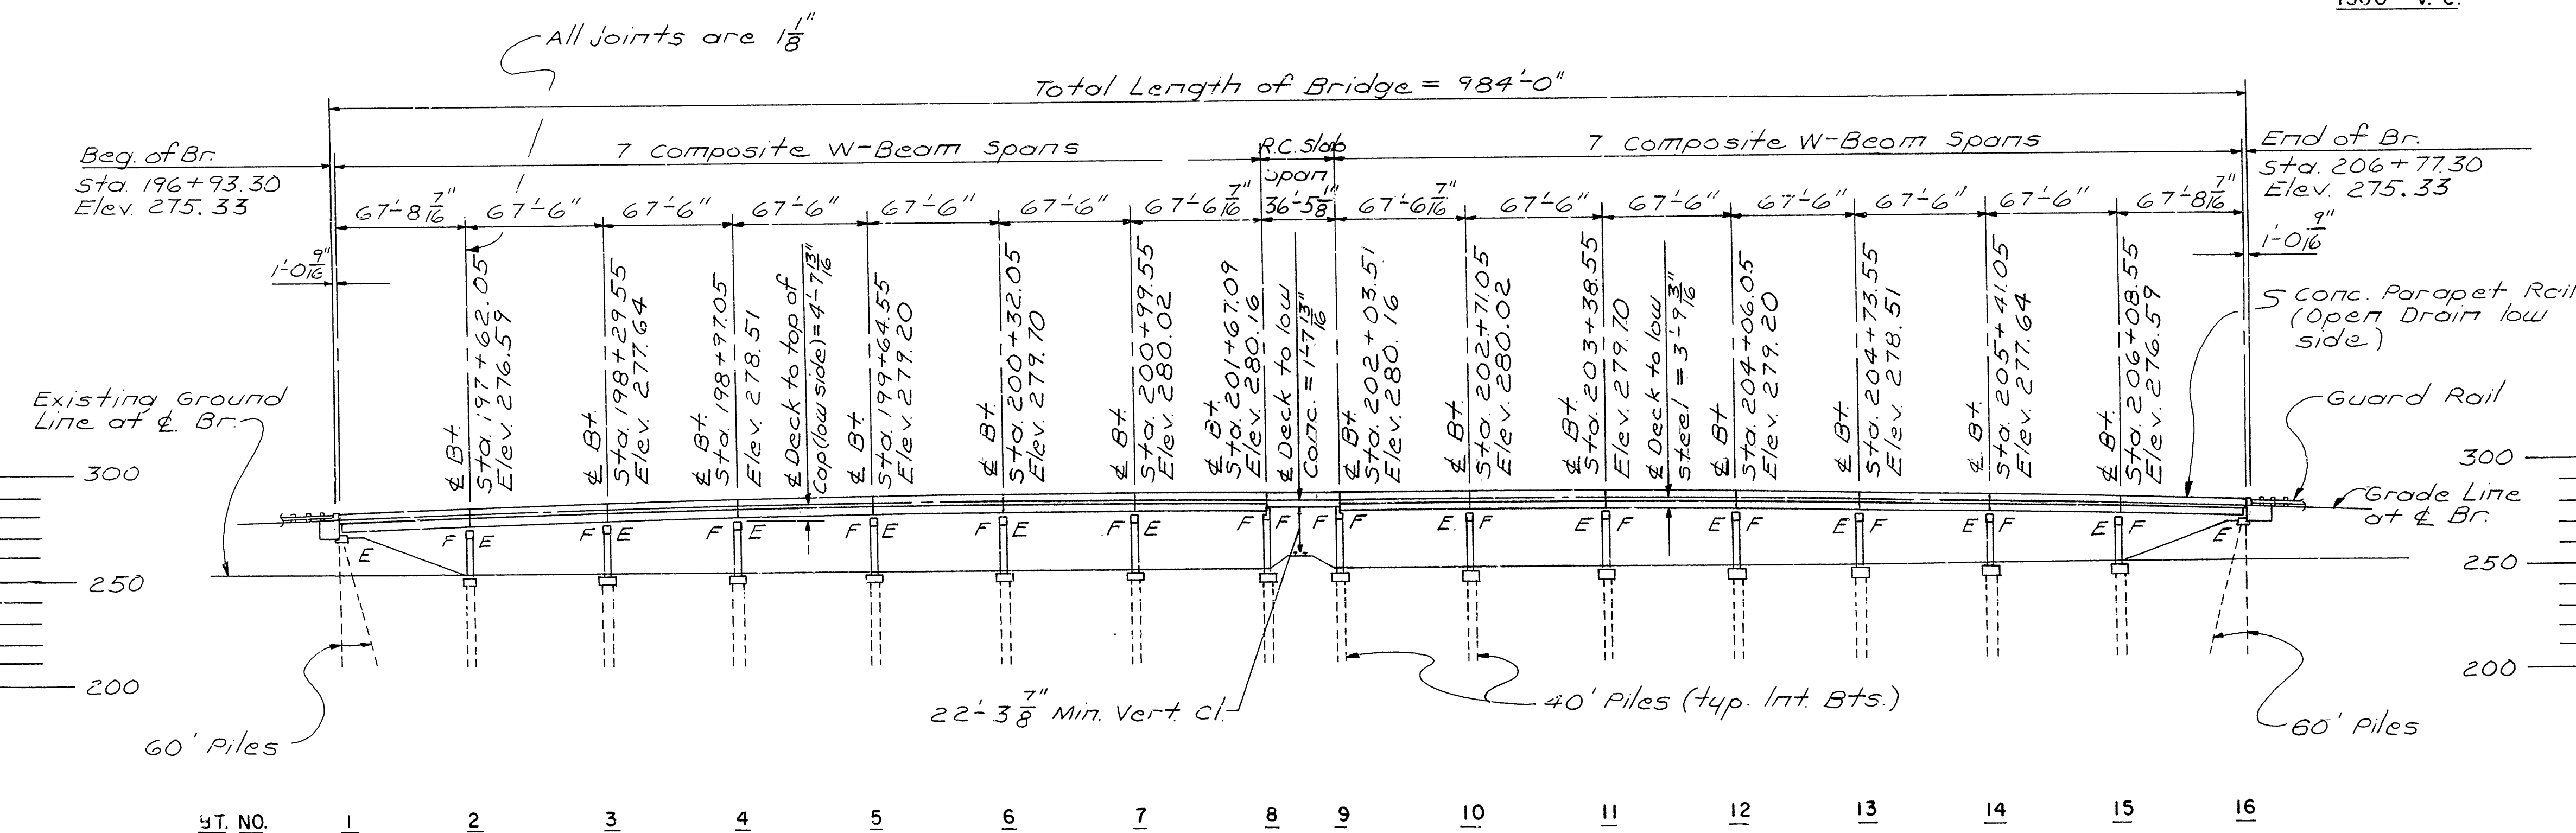 1500' V. C.
All joints are 1 1/8"
Total Length of Bridge = 984'-0"
Beg. of Br.
Sta. 196+93.30
Elev. 275.33
7 Composite W-Beam Spans
R.C. Slab
Span
7 Composite W-Beam Spans
End of Br.
Sta. 206+77.30
Elev. 275.33
67'-8 7/16" 67'-6" 67'-6" 67'-6" 67'-6" 67'-6" 67'-6 7/16" 36'-5 1/8" 67'-6 7/16" 67'-6" 67'-6" 67'-6" 67'-6" 67'-6" 67'-8 7/16"
1'-0 9/16"
1'-0 9/16"
℄ Bt.
Sta. 197+62.05
Elev. 276.59
℄ Bt.
Sta. 198+29.55
Elev. 277.64
℄ Bt.
Sta. 198+97.05
Elev. 278.51
℄ Deck to top of
Cap(low side)=4'-7 13/16"
℄ Bt.
Sta. 199+64.55
Elev. 279.20
℄ Bt.
Sta. 200+32.05
Elev. 279.70
℄ Bt.
Sta. 200+99.55
Elev. 280.02
℄ Bt.
Sta. 201+67.09
Elev. 280.16
℄ Deck to low
Conc. = 1'-7 13/16"
℄ Bt.
Sta. 202+03.51
Elev. 280.16
℄ Bt.
Sta. 202+71.05
Elev. 280.02
℄ Bt.
Sta. 203+38.55
Elev. 279.70
℄ Deck to low
steel = 3'-9 3/16"
℄ Bt.
Sta. 204+06.05
Elev. 279.20
℄ Bt.
Sta. 204+73.55
Elev. 278.51
℄ Bt.
Sta. 205+41.05
Elev. 277.64
℄ Bt.
Sta. 206+08.55
Elev. 276.59
Conc. Parapet Rail
(Open Drain low
side)
Existing Ground
Line at ℄ Br.
Guard Rail
Grade Line
at ℄ Br.
300
300
E F E F E F E F E F E F E F F F F E F E F E F E F E F E F E
250
250
200
200
60' Piles
22'-3 7/8" Min. Vert. Cl.
40' Piles (typ. Int. Bts.)
60' Piles
BT. NO. 1 2 3 4 5 6 7 8 9 10 11 12 13 14 15 16